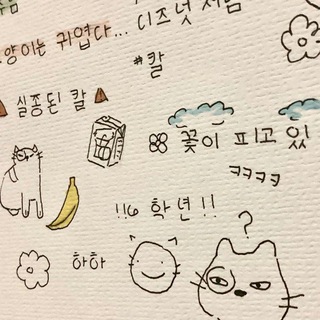 디즈넛 처럼
양이는 귀엽다...
#칼
실종된 칼
꽃이 피고 있
ㅋㅋㅋㅋ
!!6 학년!!
?
하하